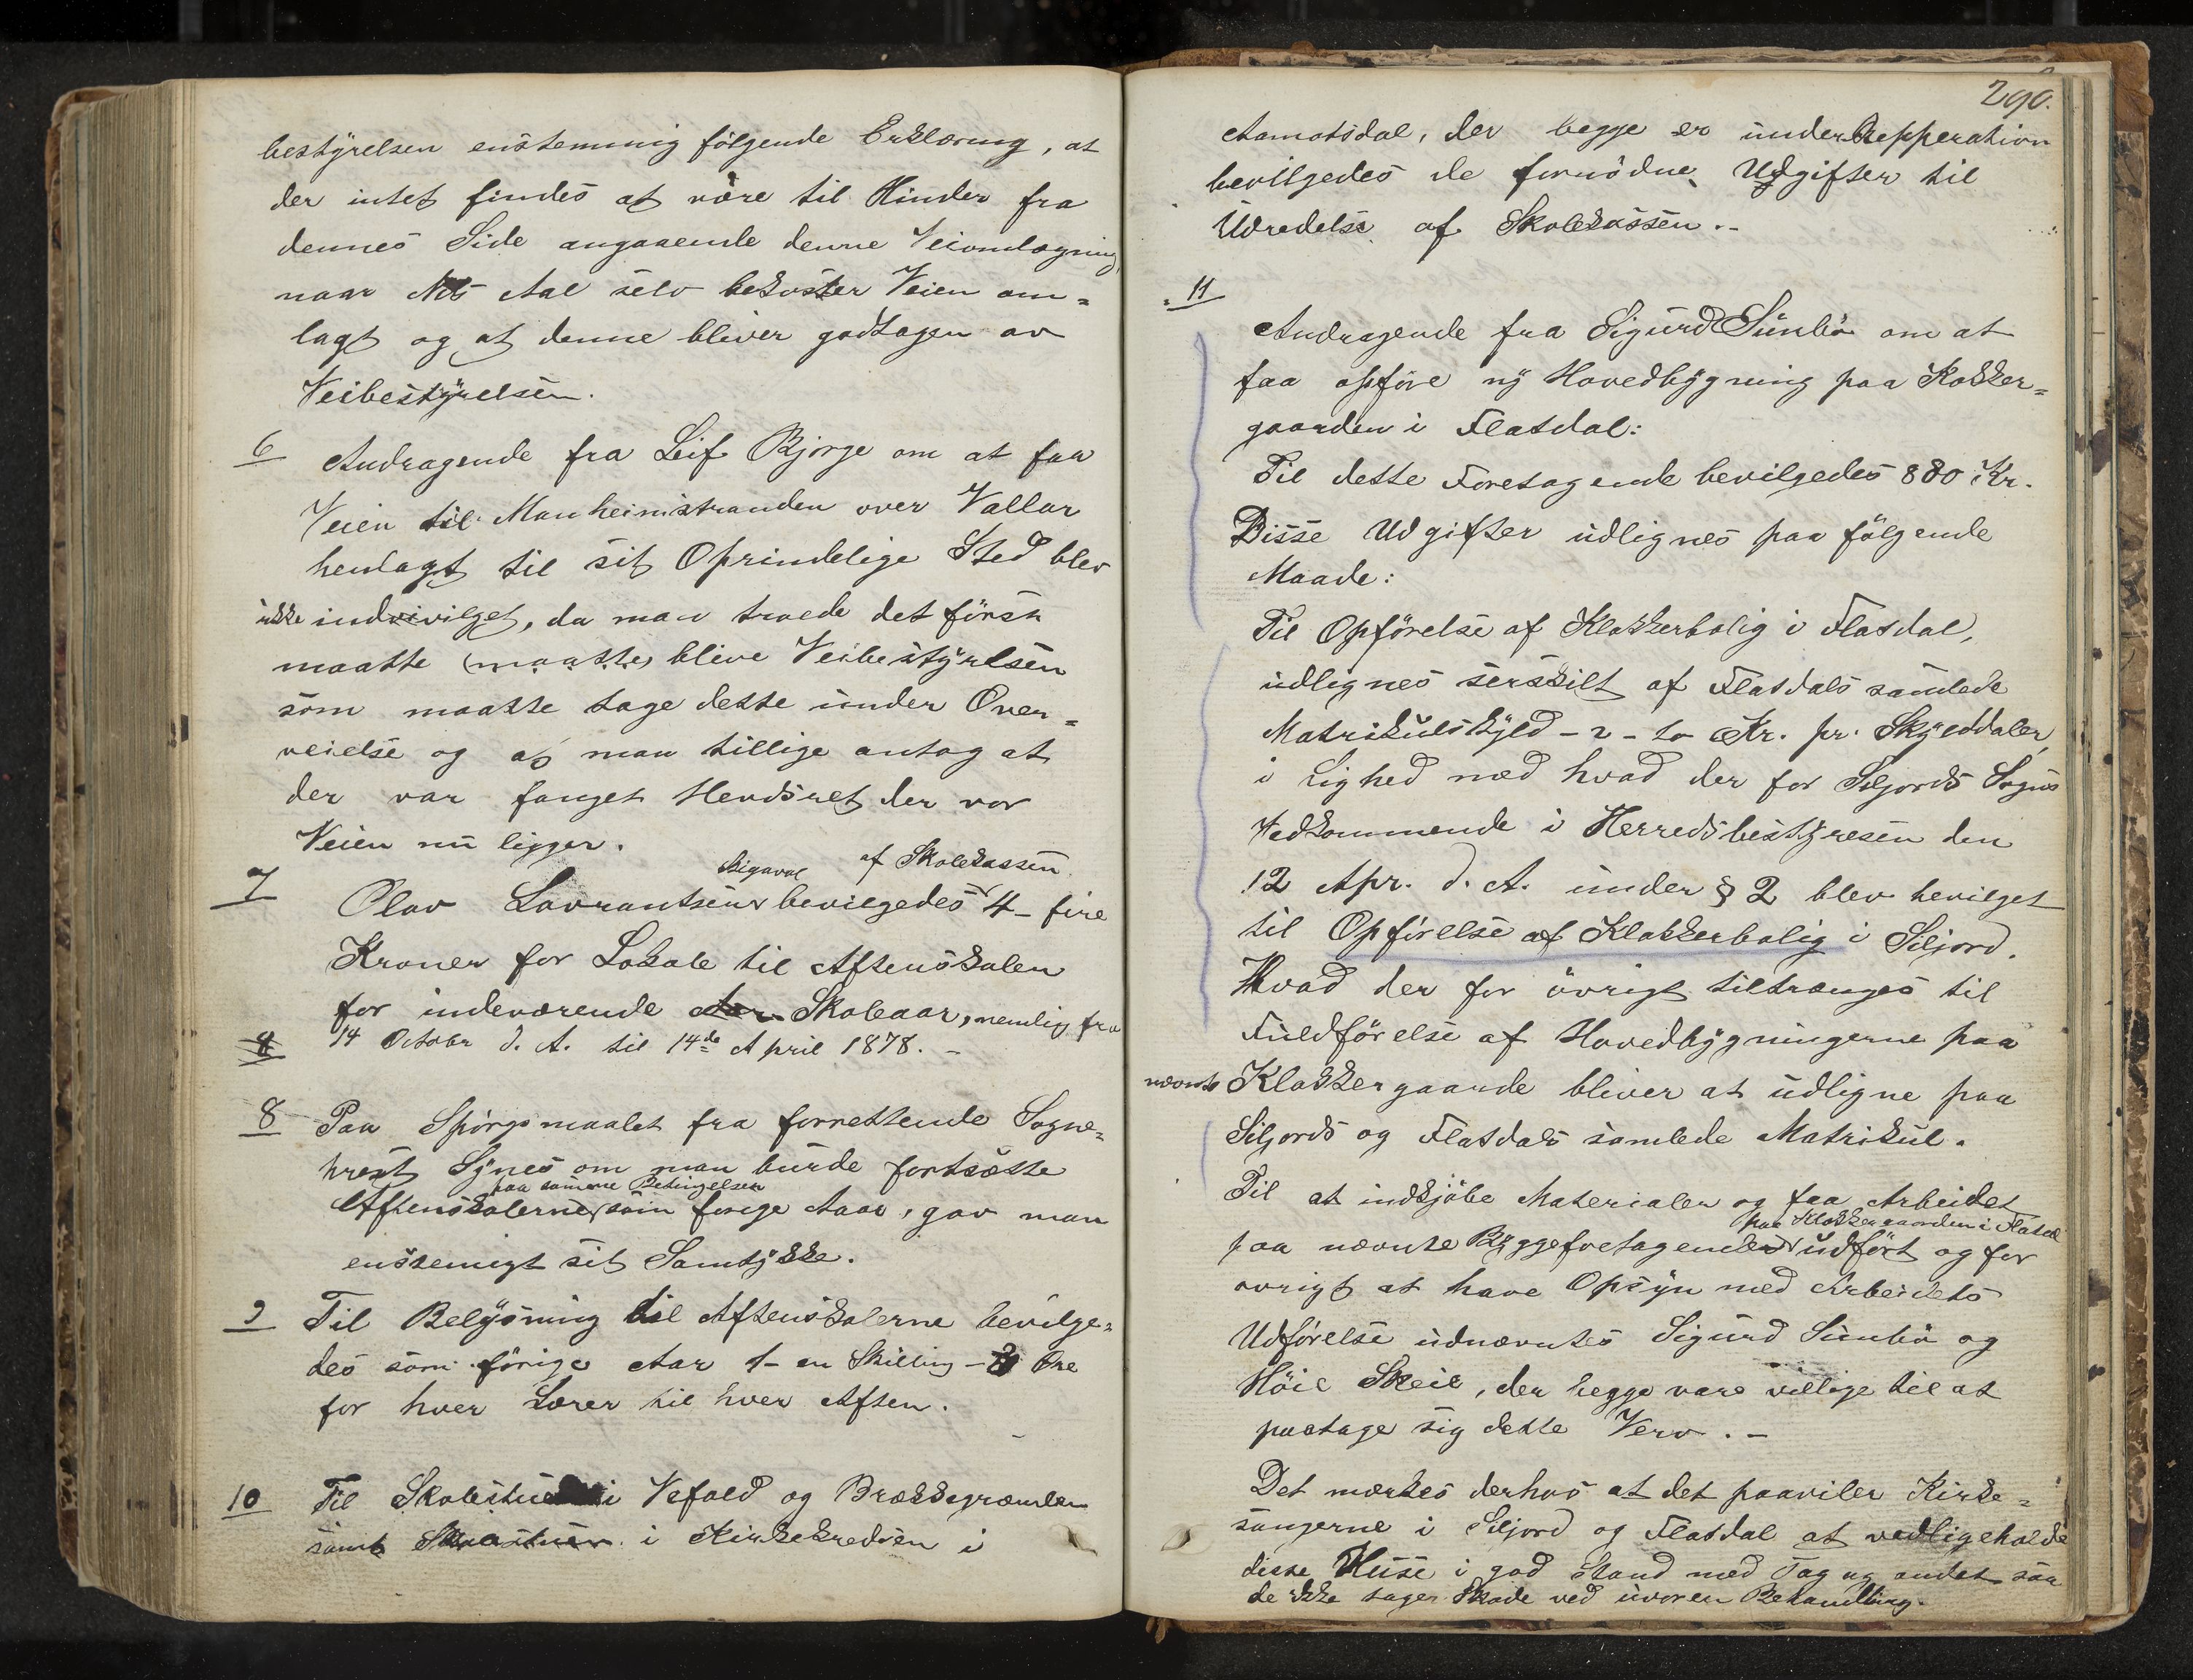 bestyrelsen enstemmig følgende Erklæring, at
der intet findes at være til Hinder fra
dennes Side angaaende denne Veiomlægning,
naar Nils Aal selv bekoster Veien om=
lagt og at denne bliver godtagen av
Veibestyrelsen.
6 Andragende fra Leif Bjørge om at faa
Veien til Manheimstranden over Vallar
henlagt til sit Oprindelige Sted blev
ikke indvivilget, da man troede det først
maatte (maatte) blive Veibestyrelsen
som maatte tage dette under Over=
veielse og at man tillige antog at
der var fanget Hevdsret der vor
Veien nu ligger.
Bigaval af Skolekassen
7 Olav Lavrantsen bevilgedes 4- fire
Kroner for Lokale til Aftenskolen
for indeværende Aar Skoleaar, nemlig fra
8 14 Octobr d. A. til 14de April 1878. -
8 Paa Spørgsmaalet fra forrettende Sogne=
prest Synes om man burde fortsætte
paa samme Betingelser
Aftenskolerne som forige Aar, gav man
enstemigt sit Samtykke.
9 Til Belysning til Aftenskolerne bevilge=
des som førige Aar 1- en Skilling - 3 Øre
for hver Lærer til hver Aften.
10 Til Skolestue i Vefald og Brækkegrænden
samt Skolestuen i Kirkekredsen i
290.
Aamotsdal, der begge er under Repperation
bevilgedes de fornødne Udgifter til
Udredelse af Skolekassen.-
11
Andragende fra Sigurd Sunbø om at
faa opføre ny Hovedbygning paa Klokker=
gaarden i Flatdal:
Til dette Foretagende bevilgedes 880 Kr.
Disse Udgifter udlignes paa følgende
Maade:
Til Opførelse af Klokkerbolig i Flatdal,
udlignes serskilt af Flatdals samlede
Matrikulskyld - 2 - to Kr. pr. Skylddaler,
i Lighed med hvad der for Siljords Sogns
Vedkommende i Herredsbestyresen den
12 Apr. d. A. under § 2 blev bevilget
til Opførelse af Klokkerbolig i Siljord.
Hvad der for øvrigt tiltrænges til
Fuldførelse af Hovedbygningerne paa
nævnte Klokkergaarde bliver at udligne paa
Siljords og Flatdals samlede Matrikul.
Til at indkjøbe Materialer og faa Arbeidet
paa Klokkergaarden i Flatdal
paa nævnte Byggeforetagende udført og for
øvrigt at have Opsyn med Arbeidets
Udførelse udnævntes Sigurd Sunbø og
Høie Skeie, der begge vare villige til at
paatage sig dette Verv. -
Det mærkes derhos at det paaviler Kirke=
sangerne i Siljord og Flatdal at vedligeholde
disse Huse i god Stand med Tag og andet saa
de ikke tager Skade ved uvoren Behandling.